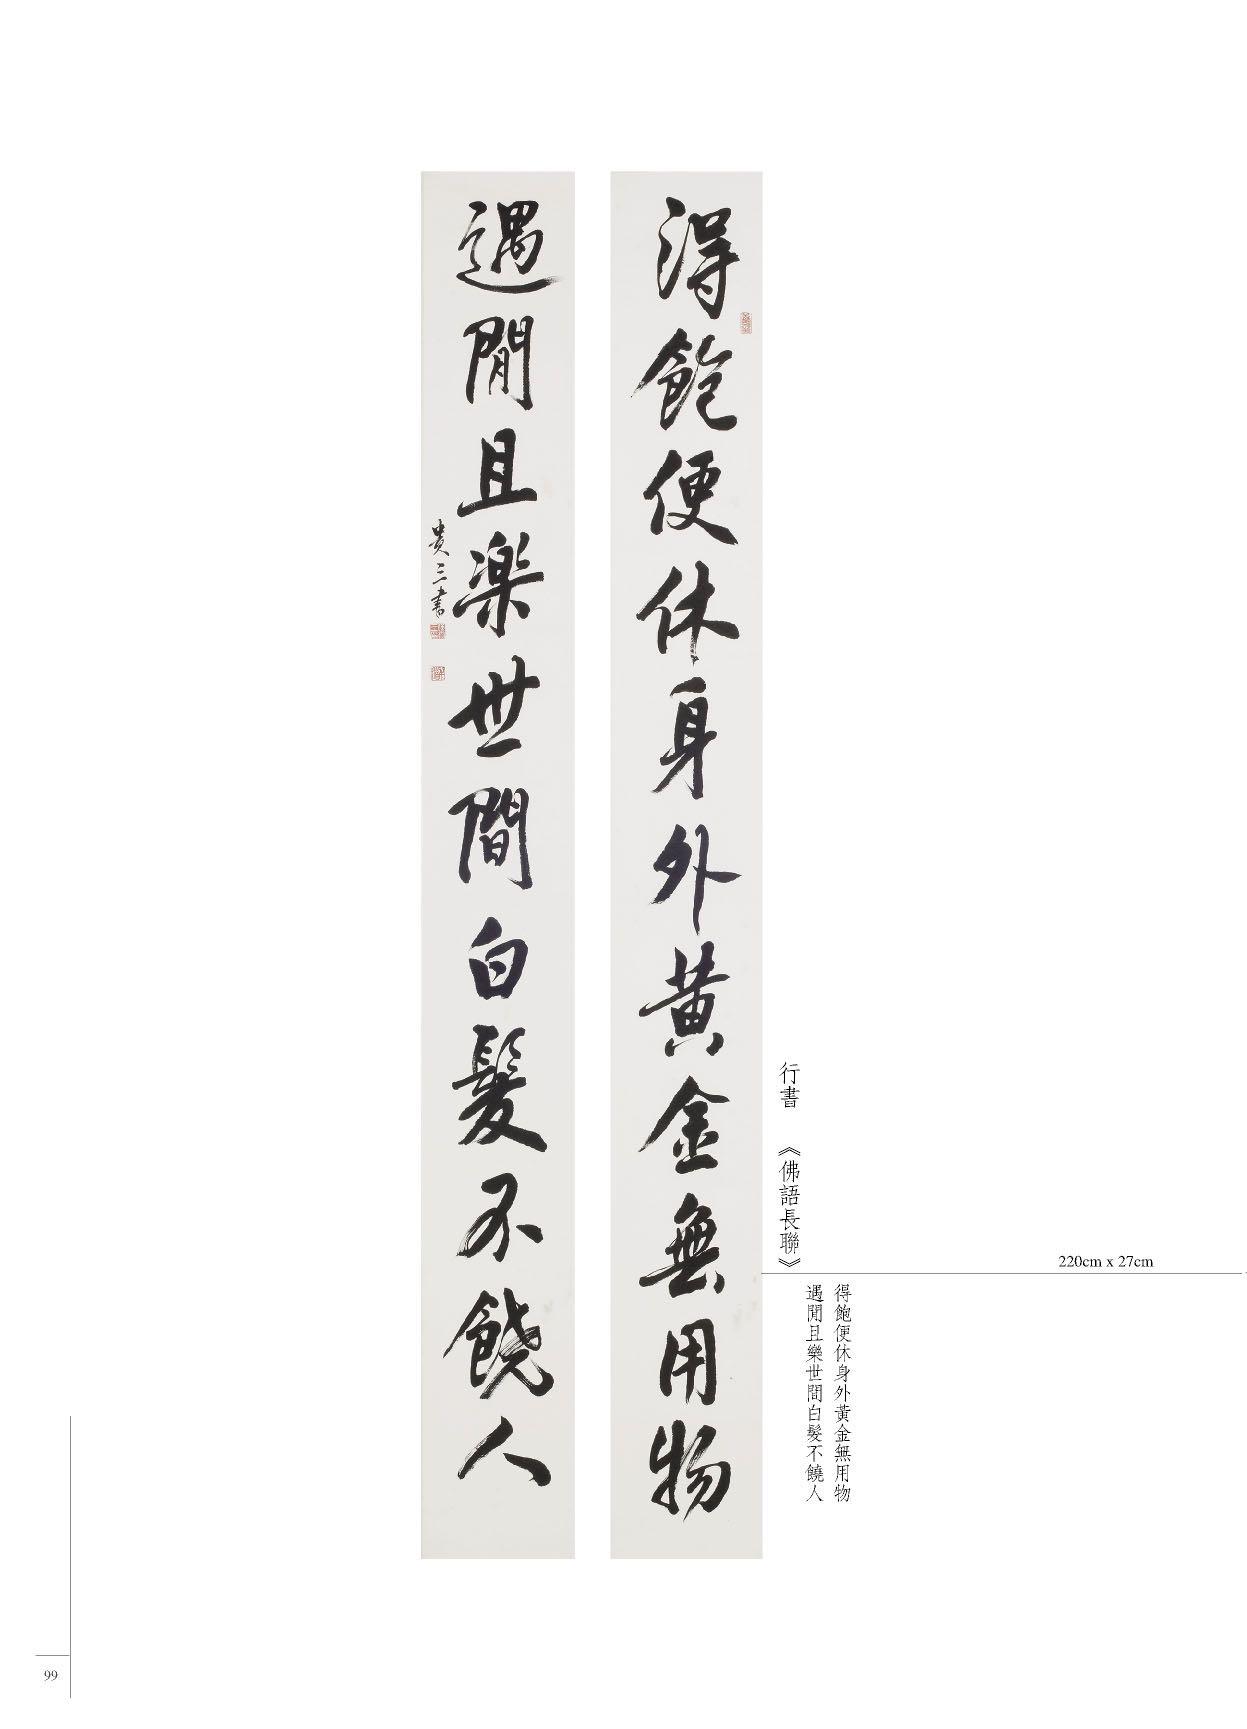 得飽便休身外黃金無用物
遇閒且樂世間白髮不饒人
貴三書
行書 《佛語長聯》
220cm x 27cm
得飽便休身外黃金無用物
遇閒且樂世間白髮不饒人
99